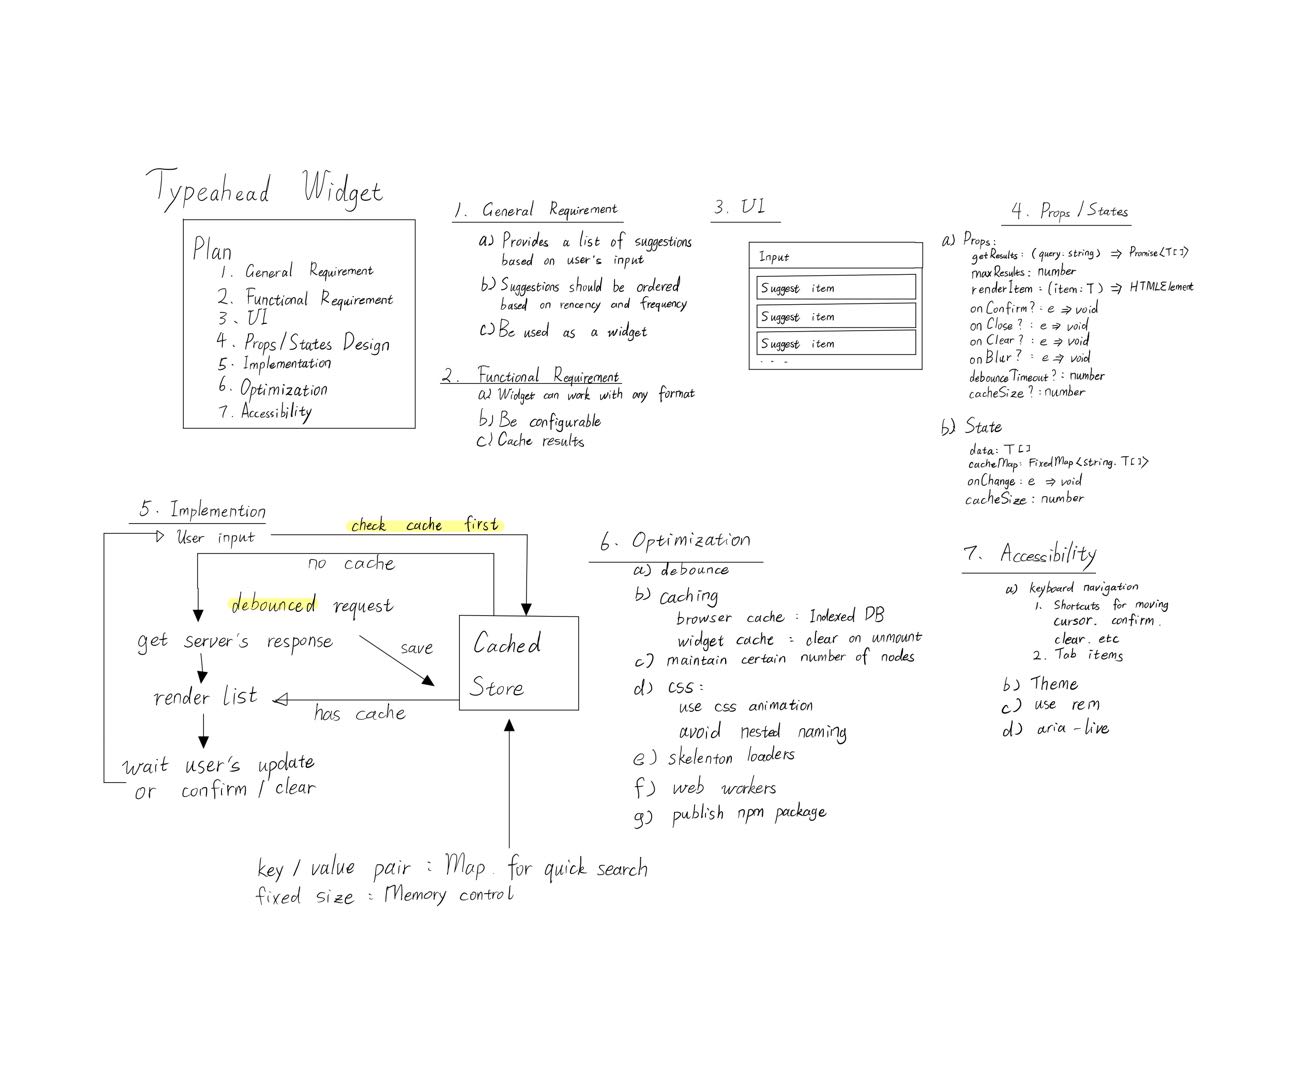 Typeahead Widget
Plan
1. General Requirement
2. Functional Requirement
3. UI
4. Props/States Design
5. Implementation
6. Optimization
7. Accessibility
1. General Requirement
a) Provides a list of suggestions
based on user's input
b) Suggestions should be ordered
based on rencency and frequency
c) Be used as a widget
2. Functional Requirement
a) Widget can work with any format
b) Be configurable
c) Cache results
3. UI
Input
Suggest item
Suggest item
Suggest item
...
4. Props/States
a) Props:
getResults: (query: string) => Promise<T[]>
maxResults: number
renderItem: (item: T) => HTMLElement
onConfirm?: e => void
onClose?: e => void
onClear?: e => void
onBlur?: e => void
debounceTimeout?: number
cacheSize?: number
b) State
data: T[]
cacheMap: FixedMap<string, T[]>
onChange: e => void
cacheSize: number
5. Implemention
User input
check cache first
no cache
debounced request
get server's response
save
Cached
Store
render list
has cache
wait user's update
or confirm / clear
key / value pair : Map. for quick search
fixed size : Memory control
6. Optimization
a) debounce
b) caching
browser cache : Indexed DB
widget cache : clear on unmount
c) maintain certain number of nodes
d) css:
use css animation
avoid nested naming
e) skelenton loaders
f) web workers
g) publish npm package
7. Accessibility
a) keyboard navigation
1. Shortcuts for moving
cursor. confirm.
clear. etc
2. Tab items
b) Theme
c) use rem
d) aria-live